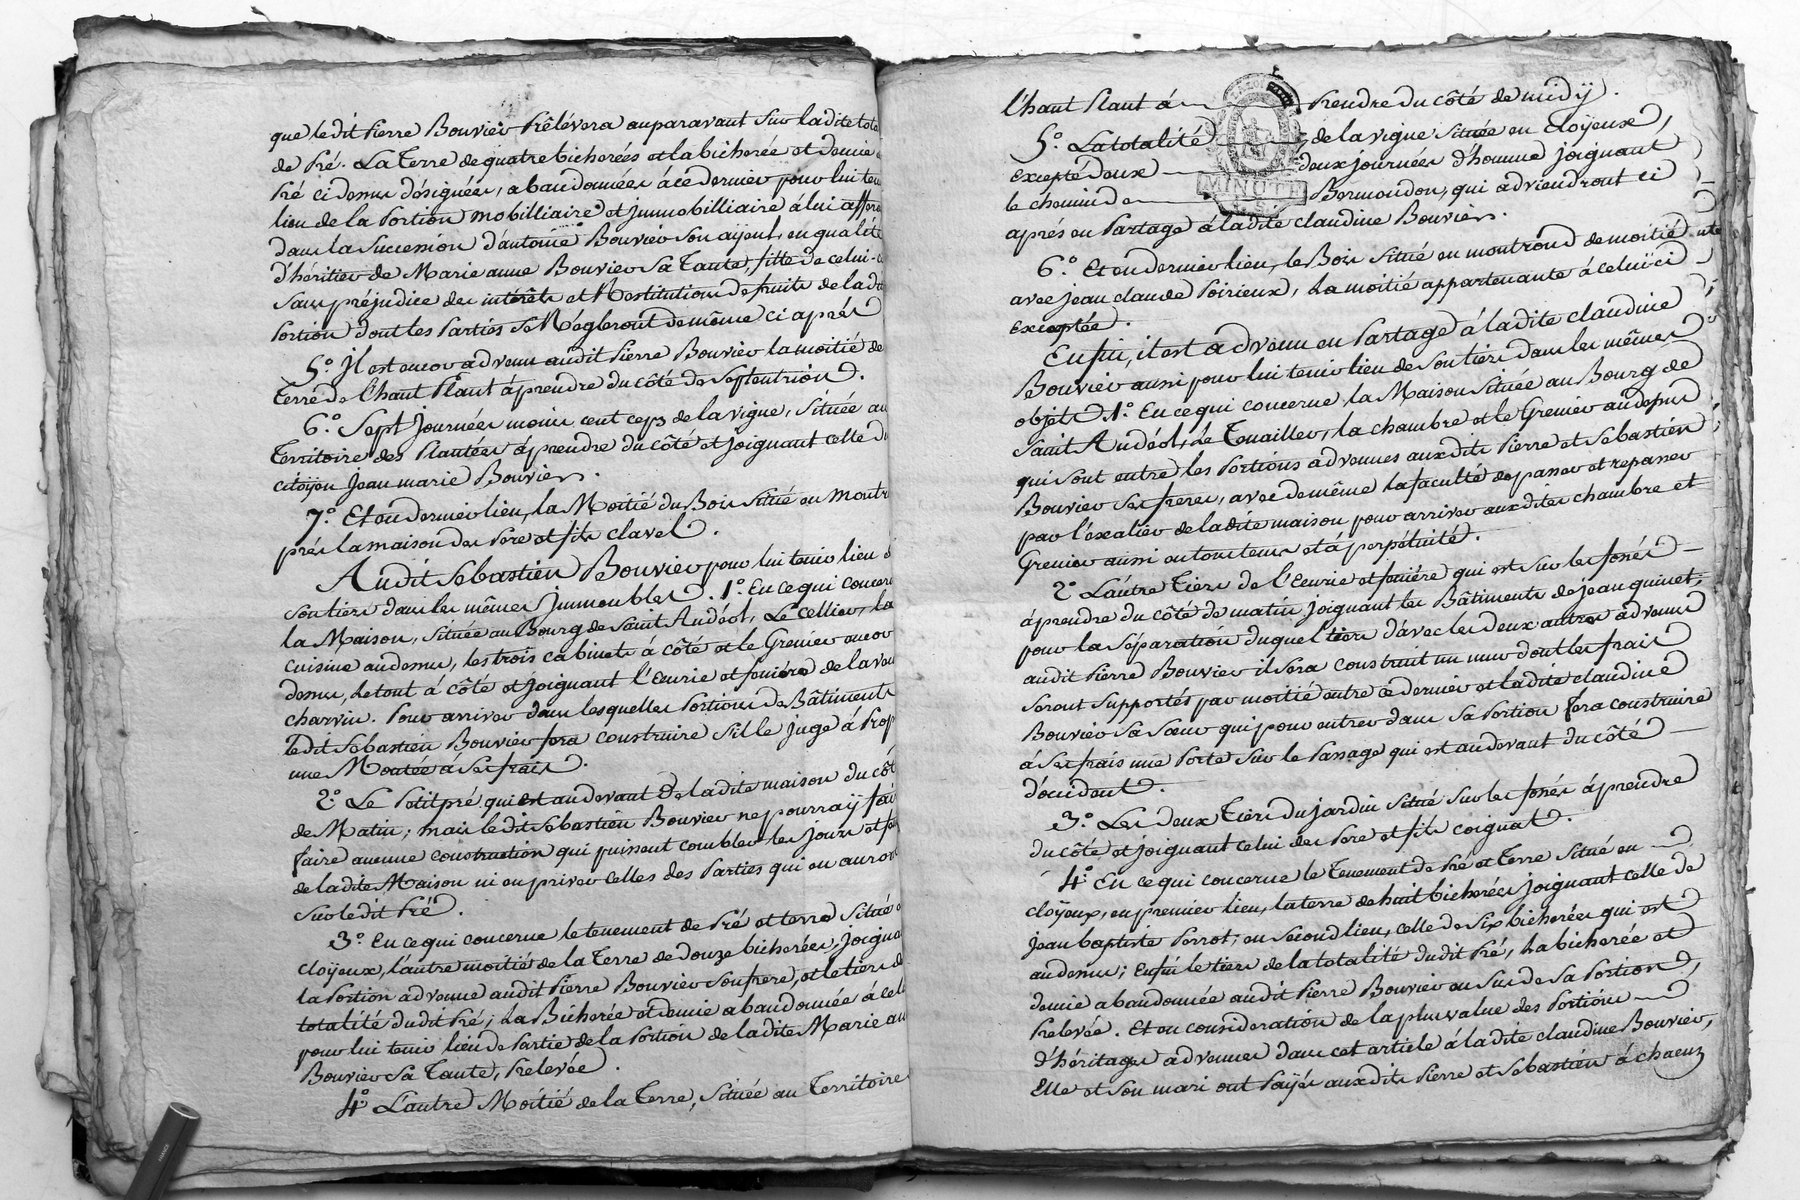 que ledit Pierre Bouvier Prélévera auparavant sur ladite tota
de Pré. La Terre de quatre bicherées et la bicherée et demie
Pré ci dessus désignées, abandonnées à ce dernier pour lui teni
lieu de la Portion mobilliaire et jmmobilliaire à lui affére
dans la Succession d'antoine Bouvier Son aÿeul, en qualité
d'héritier de Marie anne Bouvier Sa Tante, fille de celui-ci
Sans préjudice des intérêts et Restitutions de fruits de lad
Portion dont les Parties Se Régleront de même ci après
5.° Jl est encor advenu audit Pierre Bouvier la moitié de
Terre de l'haut Plant à prendre du côté de Septentrion.
6.° Sept Journées moins cent ceps de la vigne, Située au
Territoire des Plantées à prendre du côté et joignant celle du
citoÿen Jean marie Bouvier.
7.° Et en dernier lieu, la Moitié du Bois Situé en Montr
près la maison des Pere et fils clavel.
Audit Sebastien Bouvier pour lui tenir lieu d
Son tiers dans les mêmes Jmmeubles. 1.° En ce qui concer
la Maison, Située au Bourg de Saint Andéol, Le Cellier, la
cuisine au dessus, les trois cabinets à côté et le Grenier encor
dessus, le tout à côté et joignant l'Ecurie et feniére de la veu
charvin. Pour arriver dans lesquelles Portions de Bâtiments
ledit Sébastien Bouvier fera construire S'il le juge à Prop
une Montée à Ses frais.
2.° Le Petit pré qui est au devant de ladite maison du côt
de Matin; mais ledit Sébastien Bouvier ne pourra ÿ fai
faire aucune construction qui puissent combler les jours et
de ladite Maison ni en priver celles des Parties qui en auron
Sur ledit Pré.
3.° En ce qui concerne le tenement de Pré et terre Situé
cloÿeux, l'autre moitié de la Terre de douze bicherées, joigna
la Portion advenue audit Pierre Bouvier Son frere, et le tiers de
totalité dudit Pré; La Bicherée et demie abandonnée à cel
pour lui tenir lieu de Partie de la Portion de ladite Marie an
Bouvier Sa Tante, Prélevée.
4.° L'autre Moitié de la Terre, Située au Territoire
l'haut Plant à Prendre du côté de midÿ.
5.° La totalité de la vigne Située en Cloÿeux,
Excepté deux deux journées d'homme joignant
le chemin de Bermondon, qui adviendront ci
MINUTE
après en Partage à ladite claudine Bouvier.
6.° Et en dernier lieu, le Bois Situé en montrond de moitié
avec jean claude Poirieux, La moitié appartenante à celuÿ ci
Exceptée.
Enfin, il est advenu en Partage à ladite claudine
Bouvier aussi pour lui tenir lieu de Son tiers dans les mêmes
objets. 1.° En ce qui concerne la Maison Située au Bourg de
Saint Andéol, Le Tuailler, la chambre et le Grenier au dessus
qui sont entre les Portions advenues auxdits Pierre et Sébastien
Bouvier Ses freres, avec de même La faculté de passer et repasser
par l'éxalier de ladite maison pour arriver auxdites chambre et
Grenier aussi en tous tems et à perpétuité.
2.° L'autre Tiers de l'Ecurie et feniére qui est Sur les fossés
à prendre du côté de matin joignant les Bâtiments de jean guinet;
pour la séparation duquel tiers d'avec les deux autres advenus
audit Pierre Bouvier il Sera construit un mur dont les frais
Seront Supportés par moitié entre ce dernier et ladite claudine
Bouvier Sa Sœur qui pour entrer dans Sa Portion fera construire
à Ses frais une Porte Sur le Passage qui est au devant du côté
d'occident.
3.° Les deux Tiers du jardin Situé Sur les fossés à prendre
du côté et joignant celui des Pere et fils coignat.
4.° En ce qui concerne le Tenement de Pré et Terre Situé en
Cloÿeux, en premier lieu, la terre de huit bicherées joignant celle de
jean baptiste Perrot; en Second lieu, celle de Six bicherées qui est
au dessus; Enfin le tiers de la totalité dudit Pré, La bicherée et
demie abandonnée audit Pierre Bouvier en Sus de Sa Portion,
Prélevée. Et en considération de la plus value des Portions
d'héritages advenues dans cet article à ladite claudine Bouvier,
Elle et Son mari ont Paÿés auxdits Pierre et Sébastien à chacun